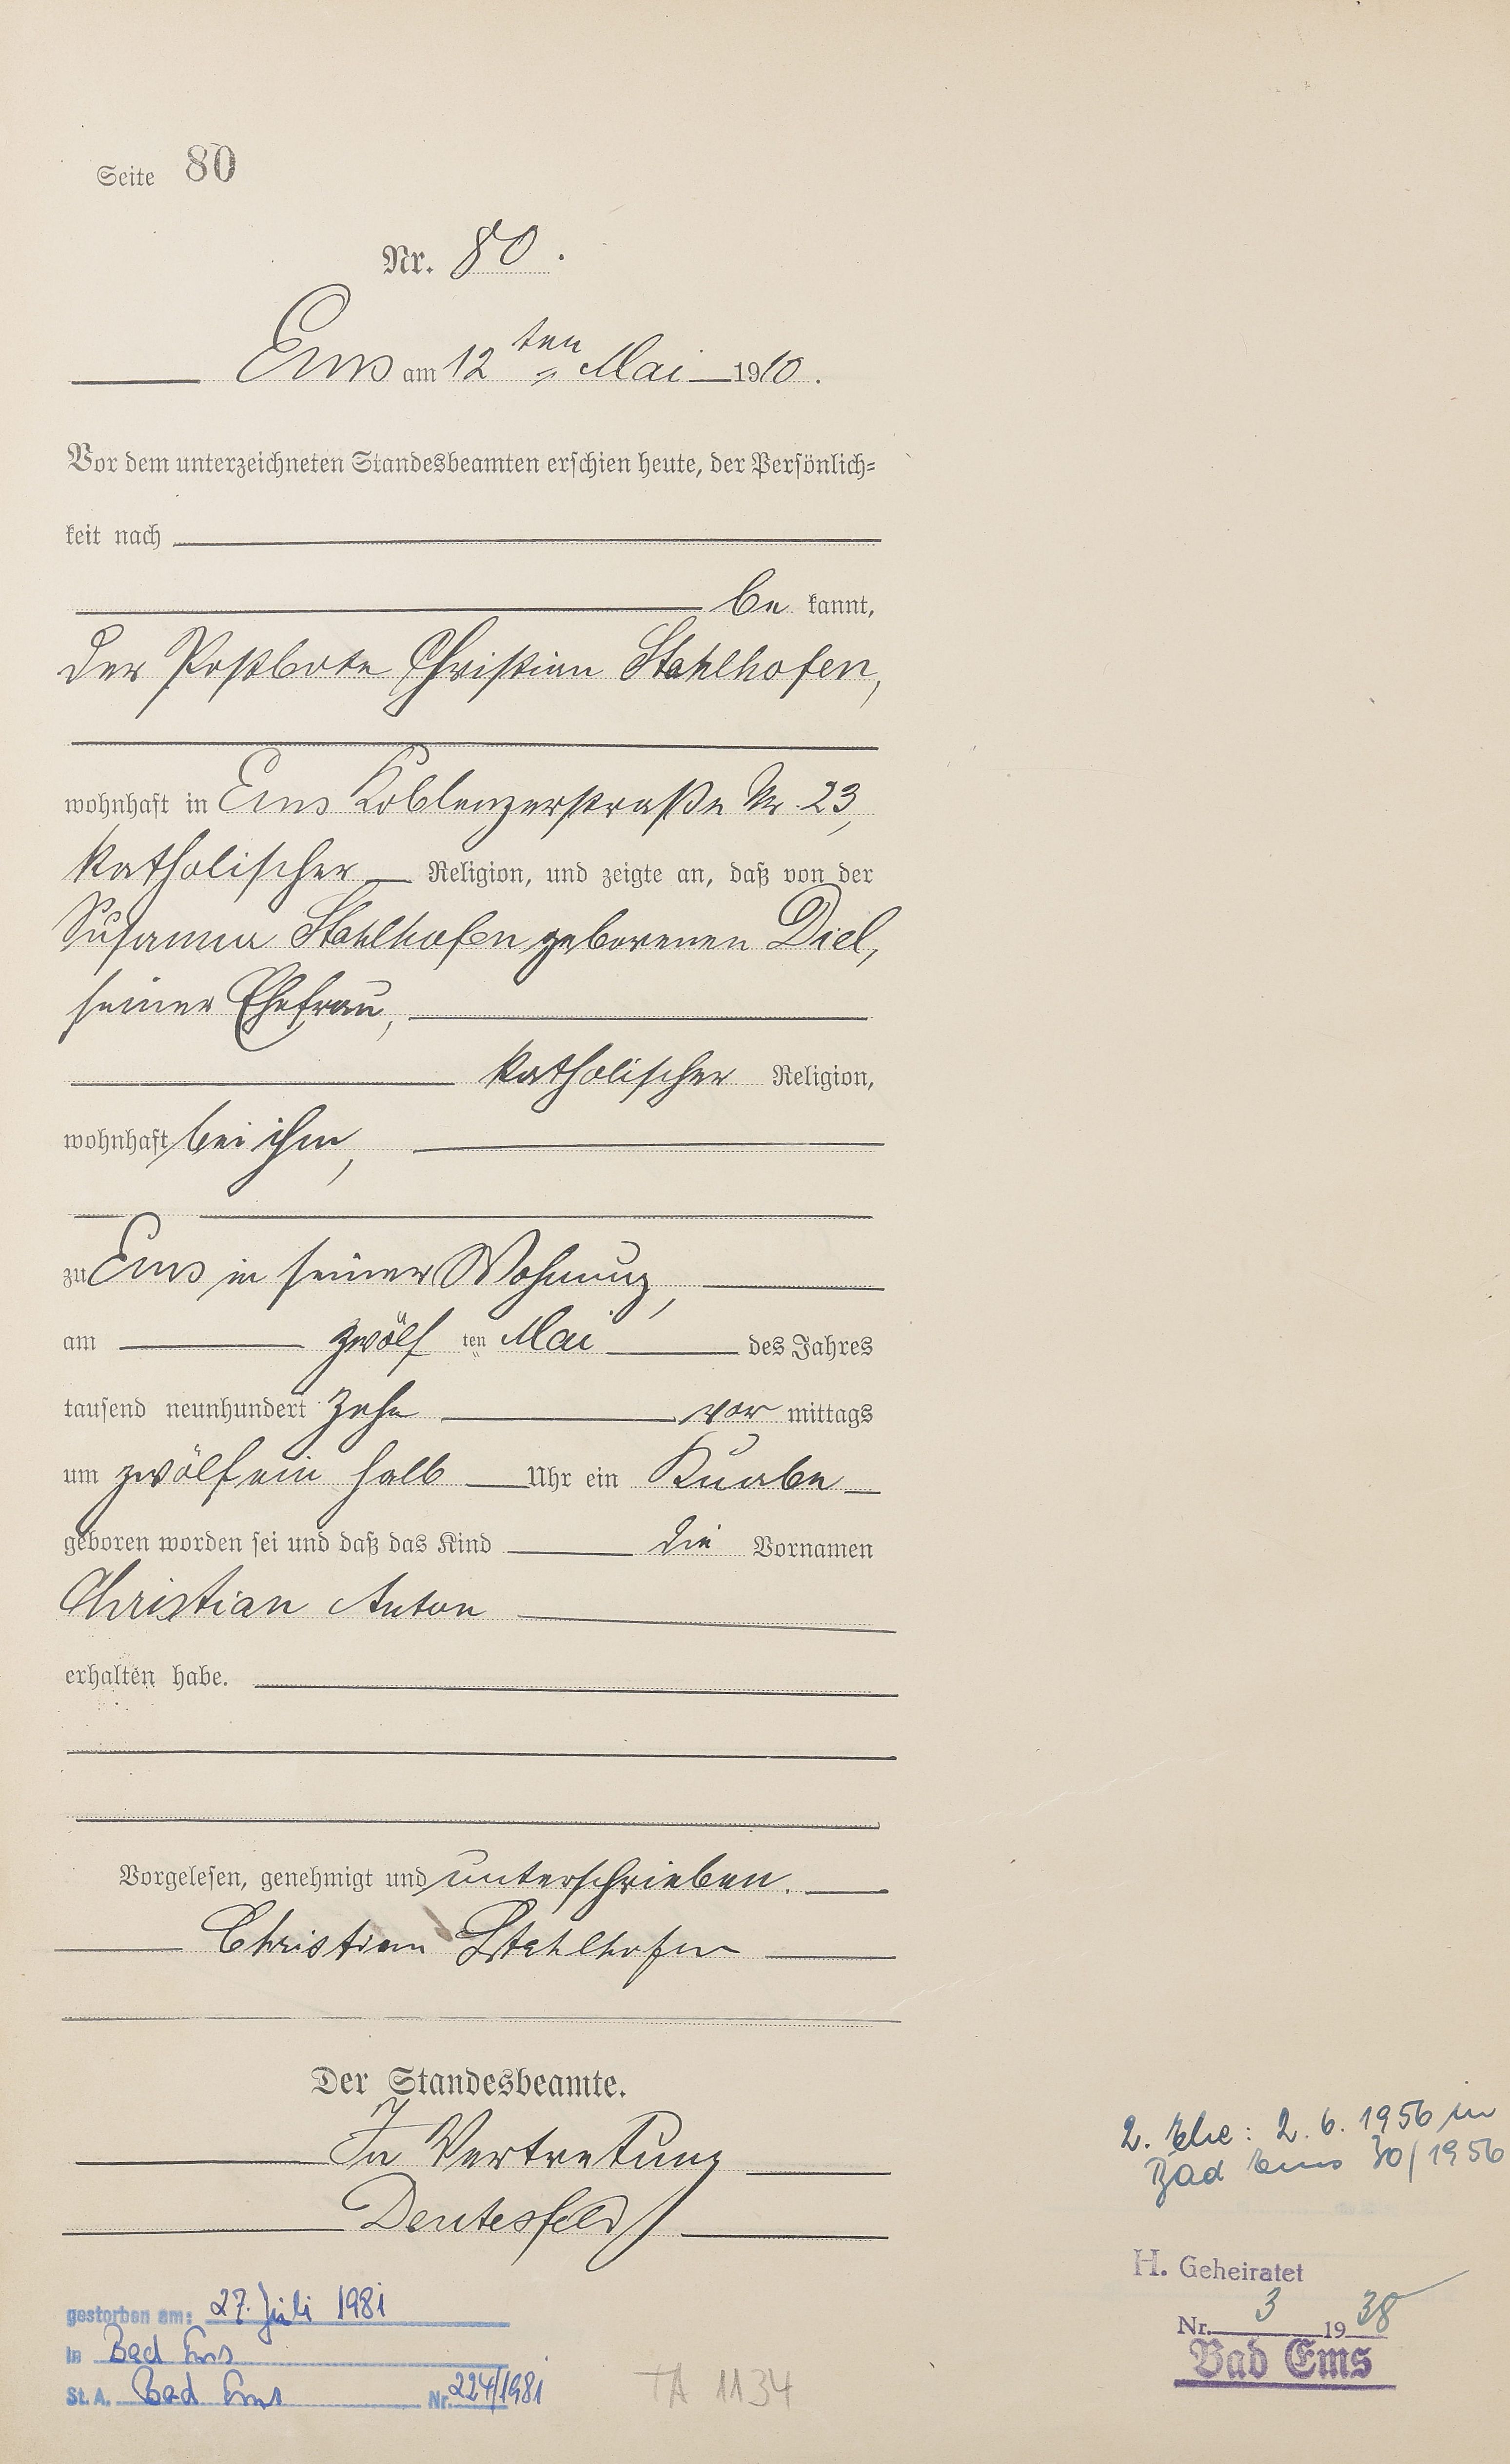 Seite 80
Nr. 80.
Ems am 12ten Mai 1910.
Vor dem unterzeichneten Standesbeamten erschien heute, der Persönlich=
keit nach
be kannt,
der Postbote Christian Stahlhofen,
wohnhaft in Ems Koblenzerstraße Nr. 23,
katholischer Religion, und zeigte an, daß von der
Susanna Stahlhofen geborenen Diel,
seiner Ehefrau,
katholischer Religion,
wohnhaft bei ihm,
zu Ems in seiner Wohnung,
am zwölf ten Mai des Jahres
tausend neunhundert zehn vor mittags
um zwölf ein halb Uhr ein Knabe
geboren worden sei und daß das Kind die Vornamen
Christian Anton
erhalten habe.
Vorgelesen, genehmigt und unterschrieben.
Christian Stahlhofen
Der Standesbeamte.
In Vertretung
Deutesfeld
2. Ehe: 2.6.1956 in
Bad Ems 30/1956
H. Geheiratet
Nr. 3 1938
Bad Ems
gestorben am: 27. Juli 1981
in Bad Ems
St. A. Bad Ems Nr. 224/1981
TA 1134